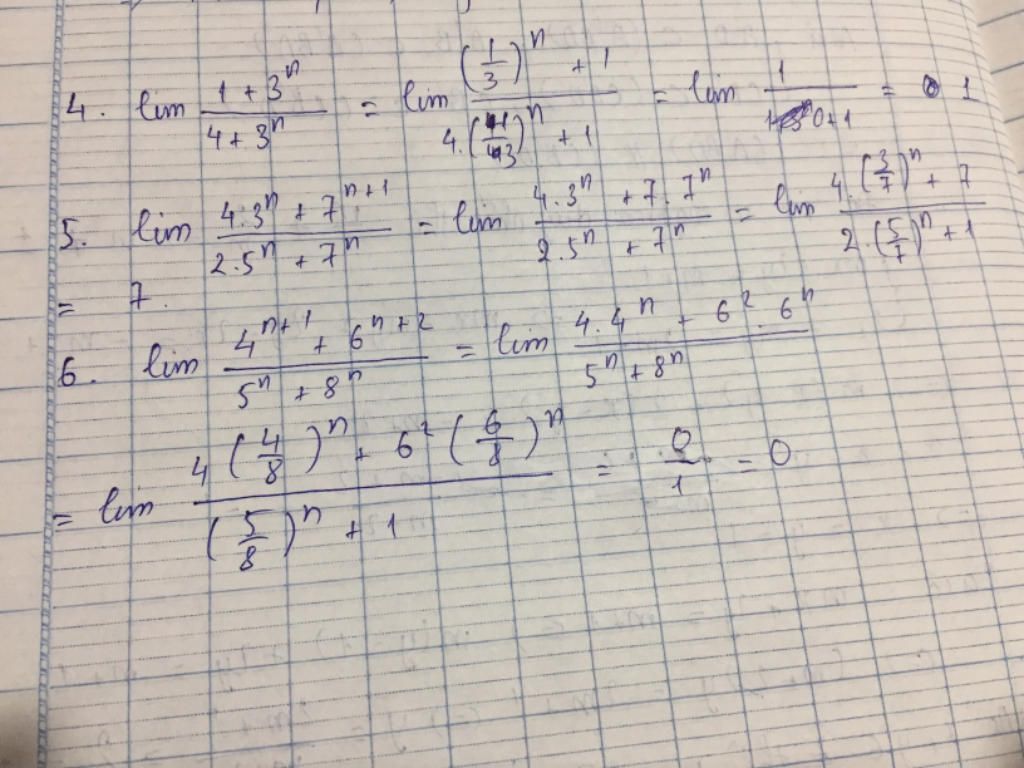 4. lim (1 + 3^n)/(4 + 3^n) = lim ((1/3)^n + 1)/(4.(1/3)^n + 1) = lim 1/(0+1) = 1
5. lim (4.3^n + 7^(n+1))/(2.5^n + 7^n) = lim (4.3^n + 7.7^n)/(2.5^n + 7^n) = lim (4.(3/7)^n + 7)/(2.(5/7)^n + 1)
= 7.
6. lim (4^(n+1) + 6^(n+2))/(5^n + 8^n) = lim (4.4^n + 6^2.6^n)/(5^n + 8^n)
= lim (4(4/8)^n + 6^2(6/8)^n)/((5/8)^n + 1) = 0/1 = 0